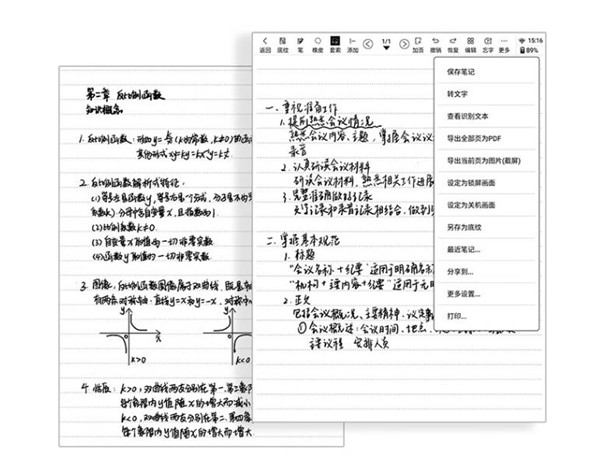 第二章 反比例函数
知识概念
1. 反比例函数:形如y=
其他形式xy=k
2. 反比例函数解析式特征:
(2)比例系数k≠0
(3)自变量x取值为一切非零实数
(4)函数y取值为一切非零实数
3. 图像:反比例函数图像属于双曲线,
有两条对称轴:直线y=x和y=-x,
y
x
k>0
y
k<0
4. 性质:k>0,双曲线两支分别在第一、第三象限
每个象限内y值随x的增大而减小
k<0,双曲线两支分别在第二、第四象
每个象限内y值随x的增大而增大
返回 底纹 笔 橡皮 套索 添加 1/1 加页 撤销 恢复 编辑 更多
15:16
89%
一、重视准备工作
1. 提前熟悉会议情况
熟悉会议内容、主题,掌握会议议
录音
2. 认真研读会议材料
研读会议材料,熟悉相关工作进展
3. 完整准确做好记录
文字记录和录音记录相结合,做到
二、掌握基本规范
1. 标题
"会议名称+纪要"适用于明确名
"机构+主要内容+纪要"适用于
2. 正文
包括会议概况、主要精神、议定事
①会议概述:会议时间、地点、
主要议程 安排人员
保存笔记
转文字
查看识别文本
导出全部页为PDF
导出当前页为图片(截屏)
设定为锁屏画面
设定为关机画面
另存为底纹
最近笔记...
分享到...
更多设置...
打印...